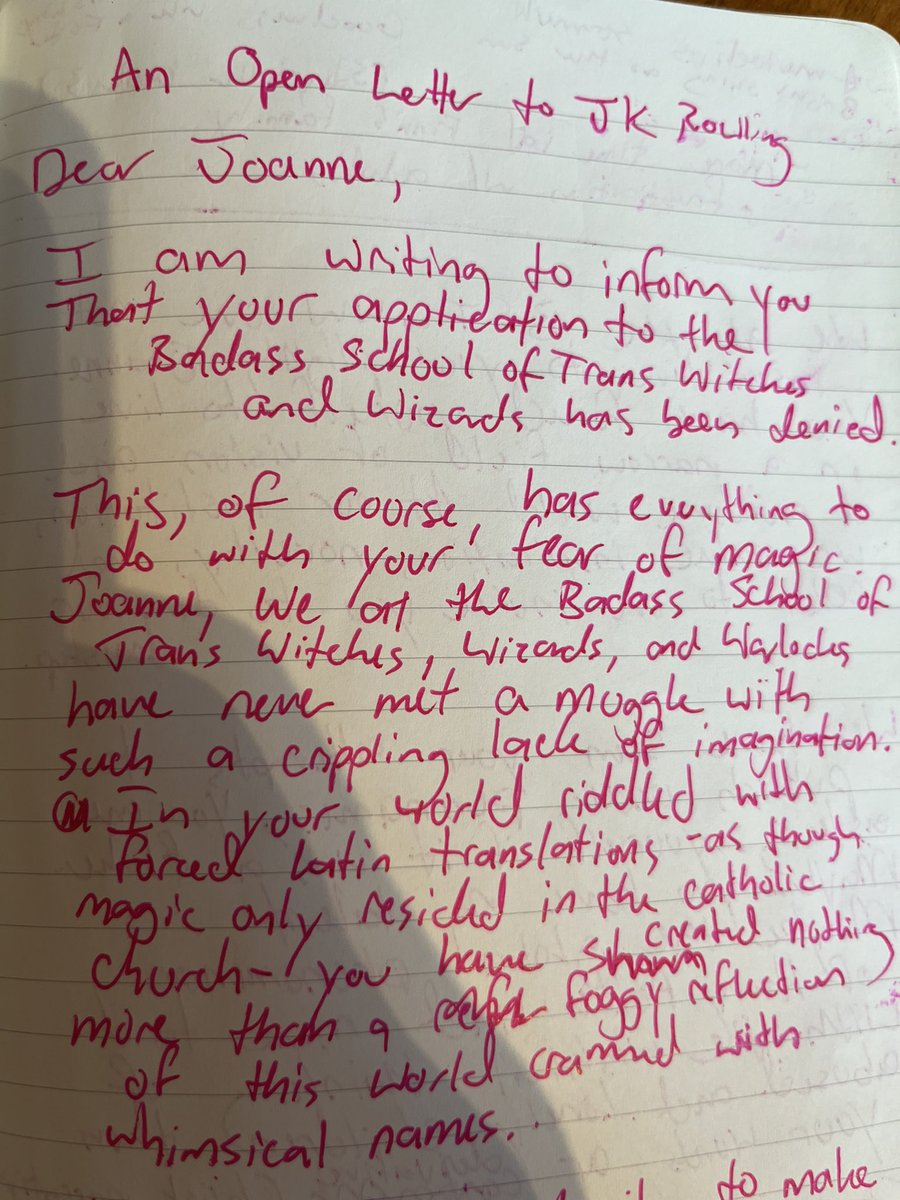 An Open Letter to JK Rowling
Dear Joanne,
I am writing to inform you
That your application to the
Badass School of Trans Witches
and Wizards has been denied.
This, of course, has everything to
do with your fear of magic.
Joanne, we at the Badass School of
Trans Witches, Wizards, and Warlocks
have never met a muggle with
such a crippling lack of imagination.
In your world riddled with
forced Latin translations - as though
magic only resided in the catholic
church - you have created nothing
more than a foggy reflection
of this world crammed with
whimsical names.
to make